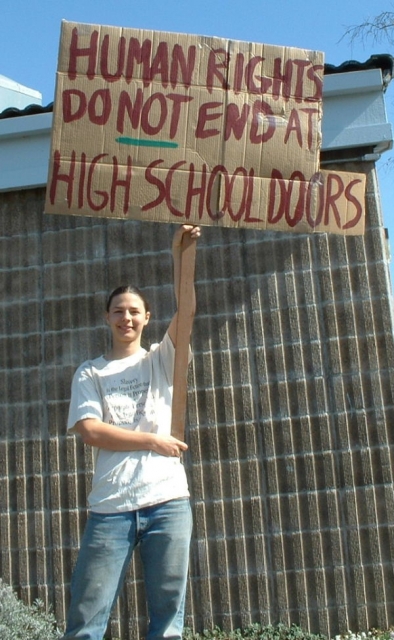 HUMAN RIGHTS
DO NOT END AT
HIGH SCHOOL DOORS
Slavery